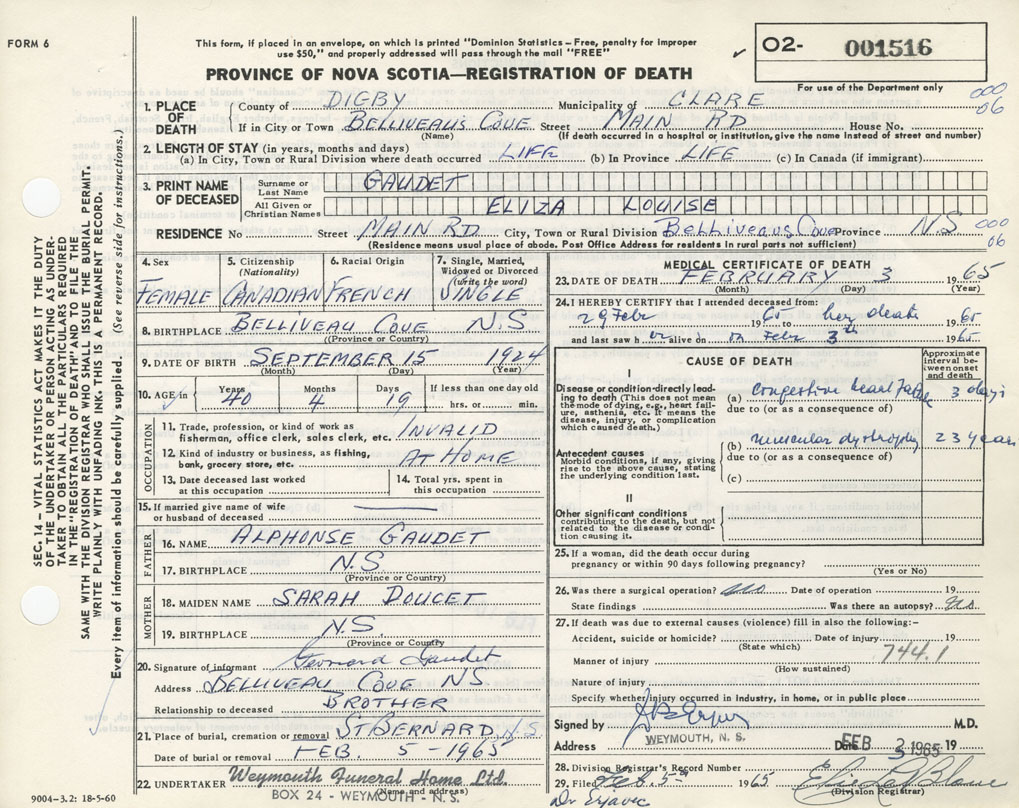 FORM 6
This form, if placed in an envelope, on which is printed "Dominion Statistics – Free, penalty for improper
use $50," and properly addressed will pass through the mail "FREE"
✓ O2- 001516
For use of the Department only
PROVINCE OF NOVA SCOTIA—REGISTRATION OF DEATH
000
06
1. PLACE OF DEATH
County of DIGBY Municipality of CLARE
If in City or Town BELLIVEAU'S COVE Street MAIN RD House No.
(Name) (If death occurred in a hospital or institution, give the name instead of street and number)
2. LENGTH OF STAY (in years, months and days)
(a) In City, Town or Rural Division where death occurred LIFE (b) In Province LIFE (c) In Canada (if immigrant)
3. PRINT NAME OF DECEASED
Surname or Last Name GAUDET
All Given or Christian Names ELIZA LOUISE
RESIDENCE No Street MAIN RD City, Town or Rural Division Belliveaus Cove Province N.S
000
06
(Residence means usual place of abode. Post Office Address for residents in rural parts not sufficient)
4. Sex FEMALE
5. Citizenship (Nationality) CANADIAN
6. Racial Origin FRENCH
7. Single, Married, Widowed or Divorced (write the word) SINGLE
8. BIRTHPLACE BELLIVEAU COVE N.S
(Province or Country)
9. DATE OF BIRTH SEPTEMBER 15 1924
(Month) (Day) (Year)
10. AGE in Years 40 Months 4 Days 19 If less than one day old
hrs. or min.
OCCUPATION
11. Trade, profession, or kind of work as
fisherman, office clerk, sales clerk, etc. INVALID
12. Kind of industry or business, as fishing,
bank, grocery store, etc. AT HOME
13. Date deceased last worked
at this occupation
14. Total yrs. spent in
this occupation
15. If married give name of wife
or husband of deceased
FATHER
16. NAME ALPHONSE GAUDET
17. BIRTHPLACE N.S
(Province or Country)
MOTHER
18. MAIDEN NAME SARAH DOUCET
19. BIRTHPLACE N.S.
(Province or Country)
20. Signature of informant Gaudet
Address BELLIVEAU COVE NS
Relationship to deceased BROTHER
21. Place of burial, cremation or removal ST BERNARD N.S.
Date of burial or removal FEB. 5 - 1965
22. UNDERTAKER Weymouth Funeral Home Ltd.
(Name and address)
BOX 24 - WEYMOUTH - N. S.
9004-3.2: 18-5-60
MEDICAL CERTIFICATE OF DEATH
23. DATE OF DEATH FEBRUARY 3 1965
(Month) (Day) (Year)
24. I HEREBY CERTIFY that I attended deceased from:
Febr 19 to her death 1965
and last saw h er alive on Febr 3th 1965
CAUSE OF DEATH
Approximate interval between onset and death
I
Disease or condition directly leading to death (This does not mean
the mode of dying, e.g., heart failure, asthenia, etc. It means the
disease, injury, or complication
which caused death.)
(a) congestive heart failure 3 days
due to (or as a consequence of)
Antecedent causes
Morbid conditions, if any, giving
rise to the above cause, stating
the underlying condition last.
(b) muscular dystrophy 23 years
due to (or as a consequence of)
(c)
II
Other significant conditions
contributing to the death, but not
related to the disease or condition causing it.
25. If a woman, did the death occur during
pregnancy or within 90 days following pregnancy?
(Yes or No)
26. Was there a surgical operation? no Date of operation 19
State findings Was there an autopsy? no
27. If death was due to external causes (violence) fill in also the following:–
Accident, suicide or homicide? Date of injury 19
(State which) 744.1
Manner of injury
(How sustained)
Nature of injury
Specify whether injury occurred in industry, in home, or in public place
Signed by M.D.
Address WEYMOUTH, N. S. Date FEB 3 1965 19
28. Division Registrar's Record Number
29. Filed Feb. 5 1965
(Division Registrar)
Dr Erjavec
SEC. 14 – VITAL STATISTICS ACT MAKES IT THE DUTY
OF THE UNDERTAKER OR PERSON ACTING AS UNDERTAKER TO OBTAIN ALL THE PARTICULARS REQUIRED
IN THE "REGISTRATION OF DEATH" AND TO FILE THE
SAME WITH THE DIVISION REGISTRAR WHO SHALL ISSUE THE BURIAL PERMIT.
WRITE PLAINLY WITH UNFADING INK. THIS IS A PERMANENT RECORD.
Every item of information should be carefully supplied. (See reverse side for instructions.)